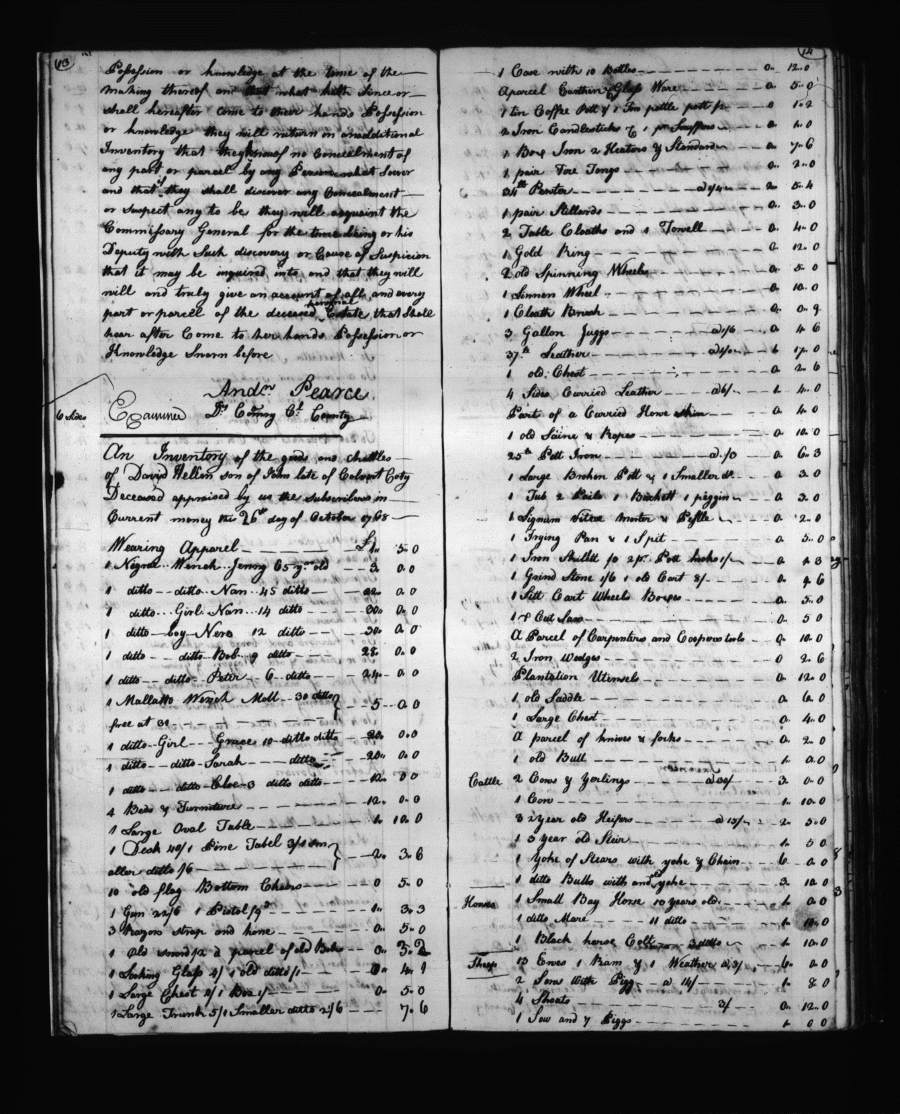 13
Possession or knowledge at the time of the
making thereof and that what hath Since or
shall hereafter come to their hands Possession
or knowledge they will return in an additional
Inventory that they know of no Concealment of
any part or parcel by any Person what soever
and that if they shall discover any Concealment
or Suspect any to be they will acquaint the
Commissary General for the time being or his
Deputy with Such discovery or Cause of Suspicion
that it may be inquired into and that they will
will and truly give an account of all and every
part or parcell of the deceased personal Estate that Shall
hear after Come to her hands Possession or
Knowledge Sworn before
Andrw Pearce
6 Sides Examined Dy Comry Cl County
An Inventory of the goods and chattles
of David Hellen son of John late of Calvert Coty
Deceased appraised by us the Subscribers in
Current money this 26th day of October 1768
Wearing Apparel £1. 5. 0
1 Negroe Wench Jenny 65 yrs old 3. 0. 0
1 ditto ditto Nan 45 ditto 0. 0
1 ditto Girl Nan 14 ditto 0. 0
1 ditto boy Nero 12 ditto 30. 0. 0
1 ditto ditto Bob 9 ditto 28. 0. 0
1 ditto ditto Peter 6 ditto 24. 0. 0
1 Mallatto Wench Moll 30 ditto
free at 31 5. 0. 0
1 ditto Girl Grace 10 ditto ditto 20. 0. 0
1 ditto ditto Sarah ditto 20. 0. 0
1 ditto ditto Cloe 3 ditto ditto 12. 0. 0
4 Beds & Furniture 12. 0. 0
1 Large Oval Table 1. 10. 0
1 Desk 40/ 1 Pine Tabel 2/1 Sm
aller ditto /6 2. 3. 6
10 old flag Bottom Chears 0 5. 0
1 Gun 22/6 1 Pistol /9d 1. 3. 3
3 Razors strap and hone 0. 5. 0
1 Old sword /2 a parcel of old Books 0. 3. 2
1 Looking Glass 1 old ditto /1 0. 4. 1
1 Large Chest 1 Box 0. 5. 0
1 Large Trunk 5/ 1 Smaller ditto 2/6 7. 6
14
1 Case with 10 Bottles 0. 12. 0
A parcel Earthin & Glass Ware 0. 5. 0
1 tin Coffee Pott & 1 Tin pottle pott 0 1. 2
2 Iron Candlesticks & 1 pr Snuffers 0. 1. 0
1 Box Iron 2 Heators & Standard 0. 7. 6
1 pair Fire Tongs 0. 2. 0
34lb Pewter 2. 5. 4
1 pair Stillards 0. 3. 0
2 Table Cloaths and 1 Towell 0. 4. 0
1 Gold Ring 0. 12. 0
2 old Spinning Wheels 0. 5. 0
1 Linnen Wheel 0. 10. 0
1 Cloath Brush 0. 0. 9
3 Gallon Juggs a 1/6 0. 4 6
37lb Leather 1 17. 0
1 old Chest 0. 2. 6
4 Sides Curried Leather a 6/ 1. 4. 0
Part of a Curried Horse Skin 0. 4. 0
1 old Saine & Ropes 0. 10. 0
25lb Pott Iron 0. 6. 3
1 Large Broken Pott & 1 Smaller Do 0. 3 0
1 Tub 2 Pails 1 Buckett 1 piggin 0. 3. 0
1 Lignum Vitae Morter & Pestle 0. 2. 0
1 Frying Pan & 1 Spit 0. 5. 0
1 Iron Skillett 2 pr Pott hooks 1/ 0. 2 3
1 Grind Stone 1/6 1 old Cart 8/ 0. 9 6
1 Sett Cart Wheels Boxes 0. 5. 0
1 X Cut Saw 0. 5 0
A Parcel of Carpenters and Coopers tools 0. 10. 0
2 Iron Wedges 0 2. 6
Plantation Utensels 0. 12. 0
1 old Saddle 0. 6. 0
1 Large Chest 0. 4. 0
A parcel of knives & forks 0. 2. 0
1 old Bull 1. 0. 0
Cattle 2 Cows & Yerlings a 30/ 3. 0. 0
1 Cow 1. 10. 0
3 2 year old Heifers a 15/ 2. 5. 0
1 3 year old Steir 1. 5 0
1 Yoke of Stears with yoke & Chain 6. 0. 0
1 ditto Bulls with and yoke 3. 10. 0
Horses 1 Small Bay Horse 10 years old 1. 0 0
1 ditto Mare 11 ditto 1. 10. 0
1 Black horse Colt 3 ditto 1. 10. 0
Sheep 13 Ewes 1 Ram & 1 Weather 6. 0. 0
2 Sows With Pigg a 14/ 1. 8. 0
4 Shoats 3/ 0. 12. 0
1 Sow and 7 Piggs 1. 0 0